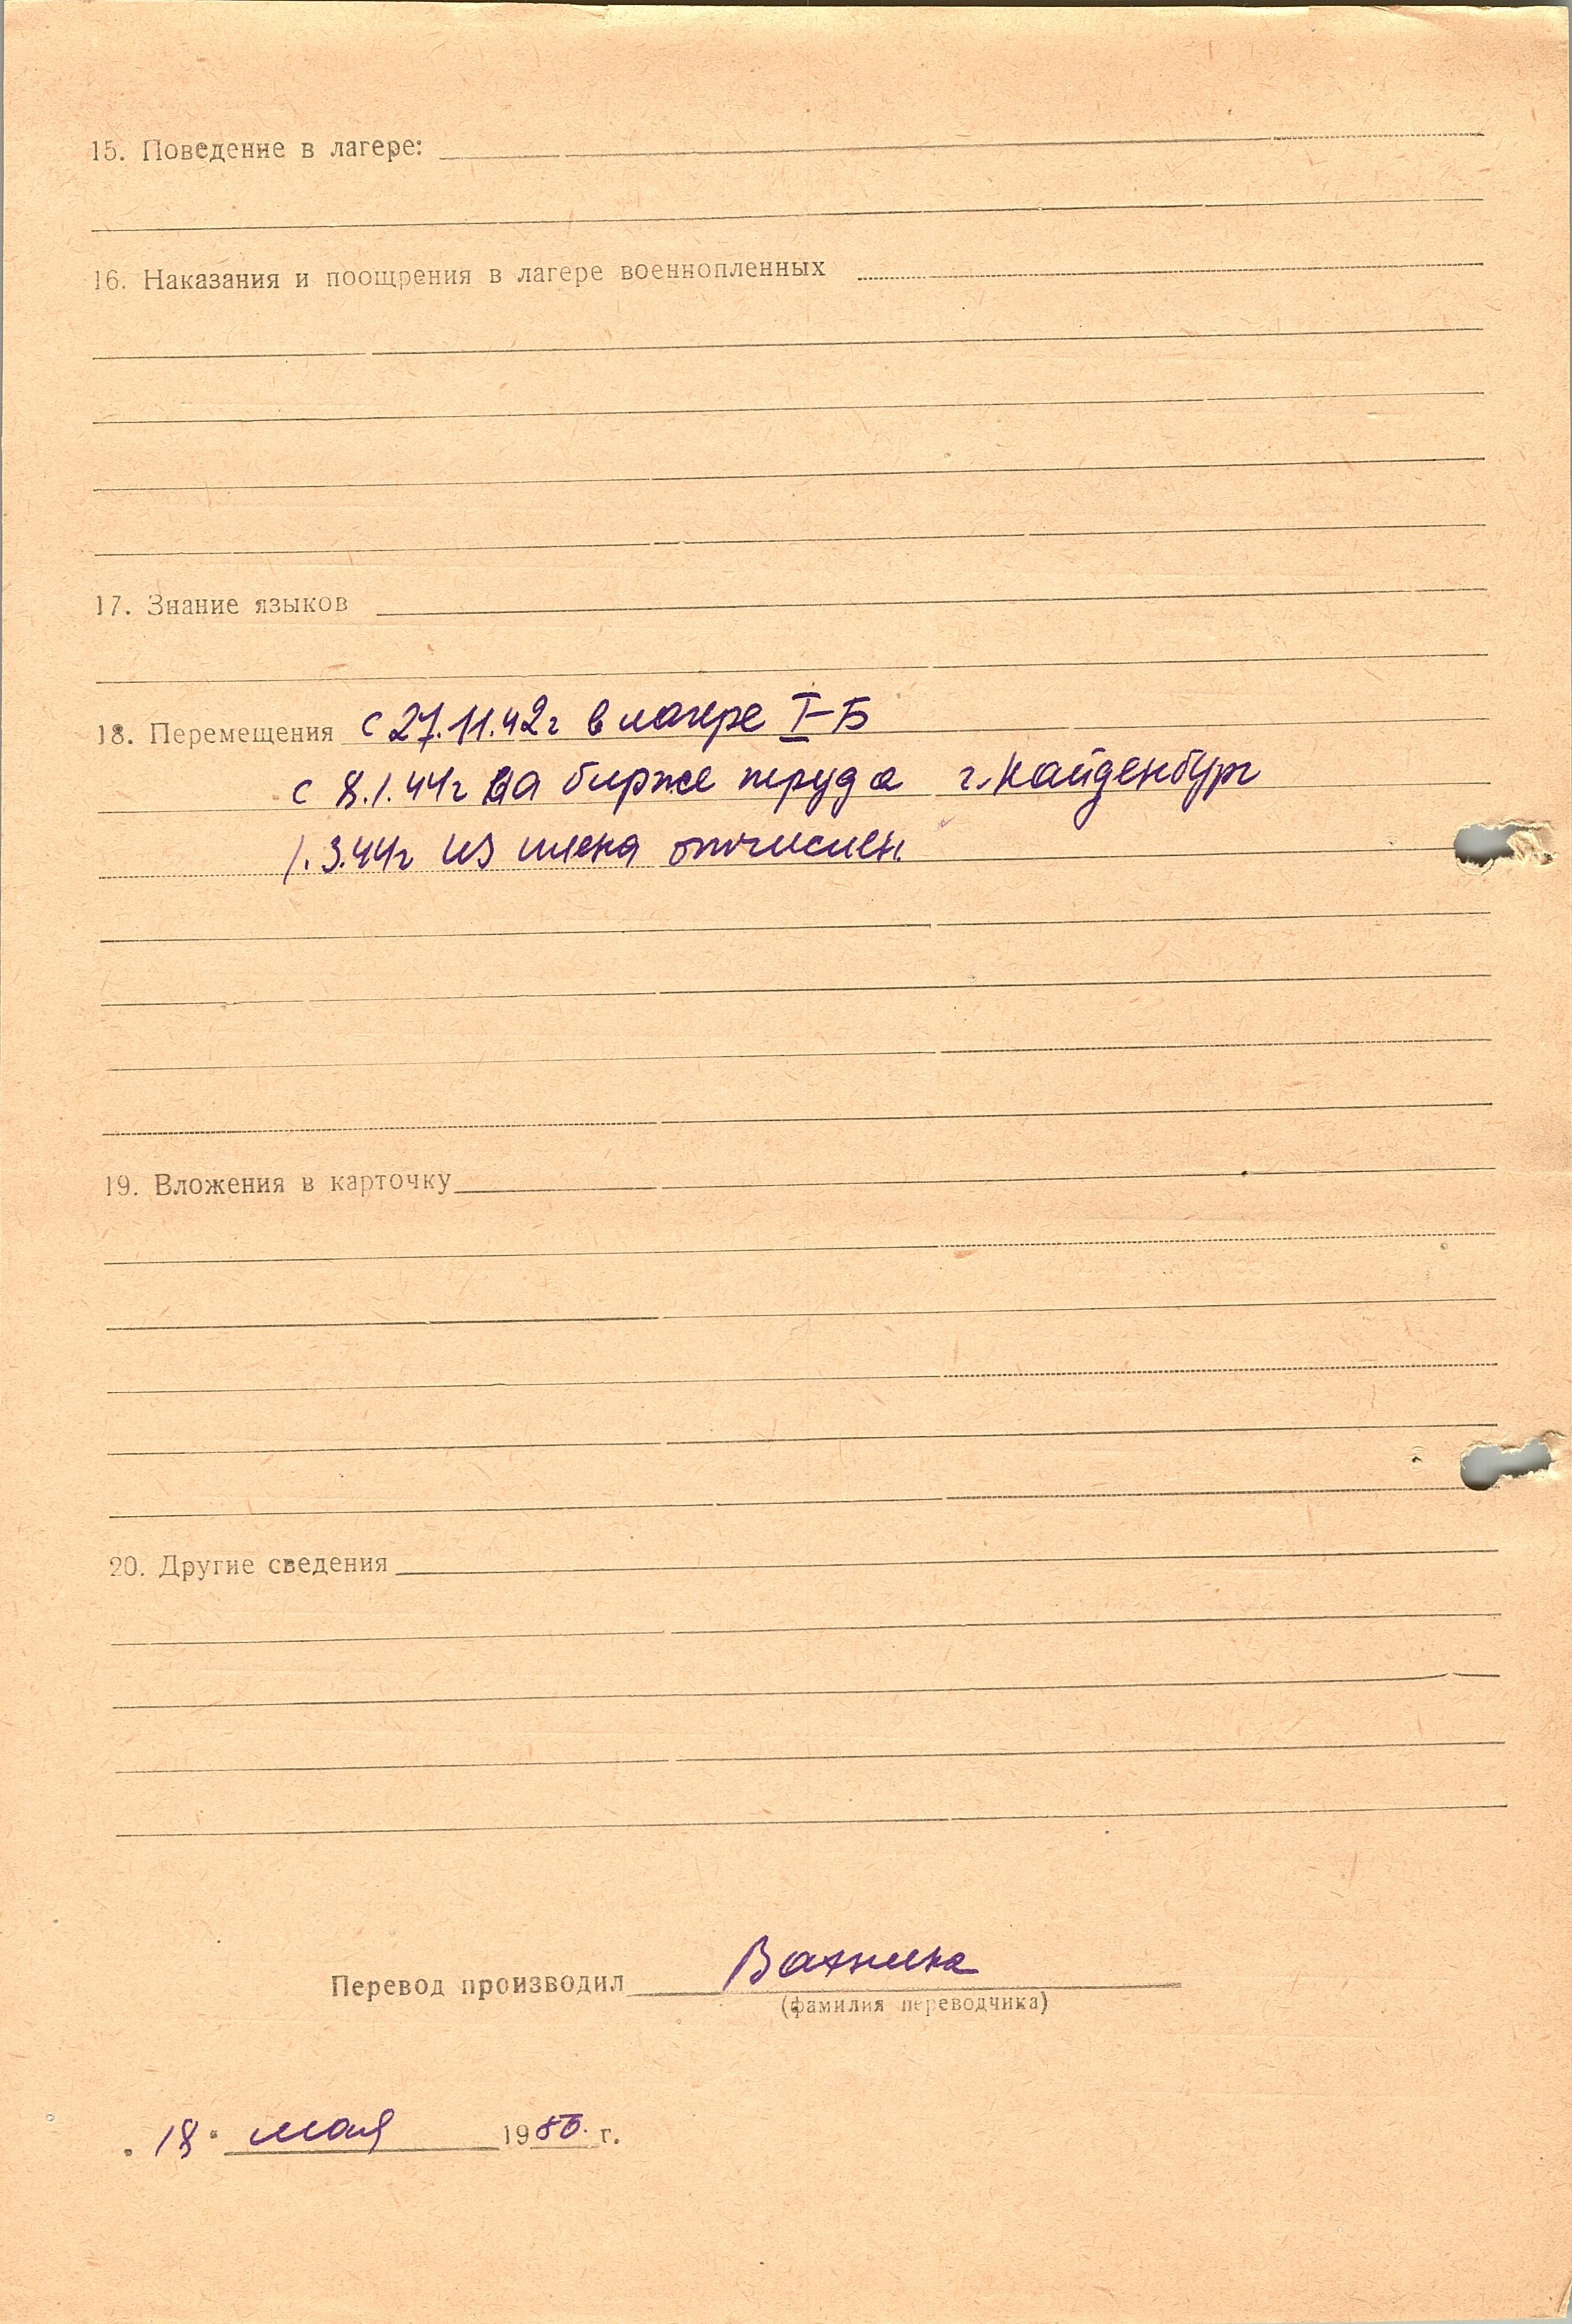 15. Поведение в лагере:
16. Наказания и поощрения в лагере военнопленных
17. Знание языков
18. Перемещения с 27.11.42г в лагере I-Б
с 8.1.44г на бирже труда г. Найденбург
1.3.44г из плена отчислен.
19. Вложения в карточку
20. Другие сведения
Перевод производил
(фамилия переводчика)
"18" мая 1950. г.